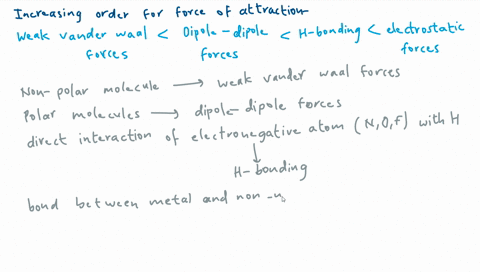 Increasing order for force of attraction
Weak vander waal < Dipole-dipole < H-bonding < electrostatic
forces forces forces
Non-polar molecule → weak vander waal forces
Polar molecules → dipole-dipole forces
direct interaction of electronegative atom (N,O,F) with H
↓
H-bonding
bond between metal and non-